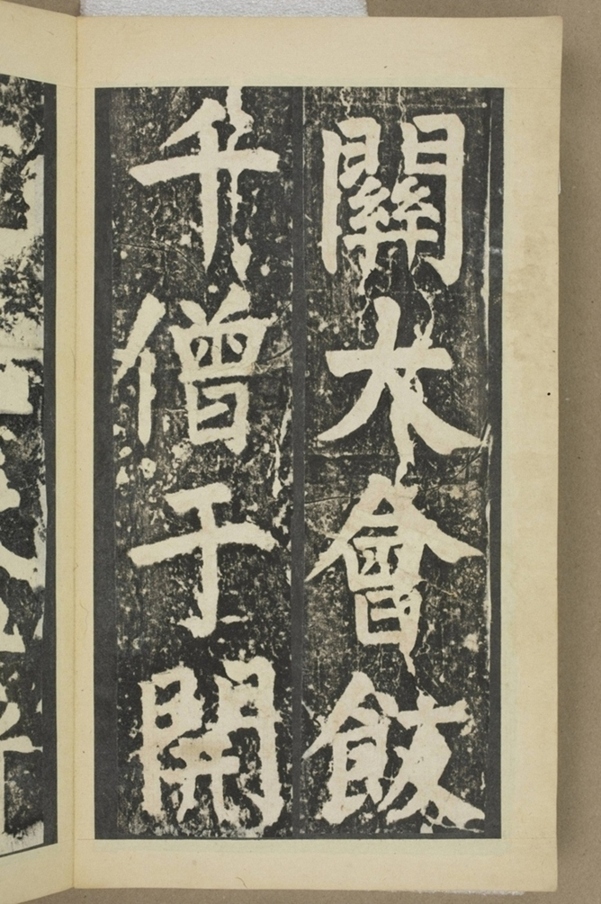 關大會飯
千僧于開